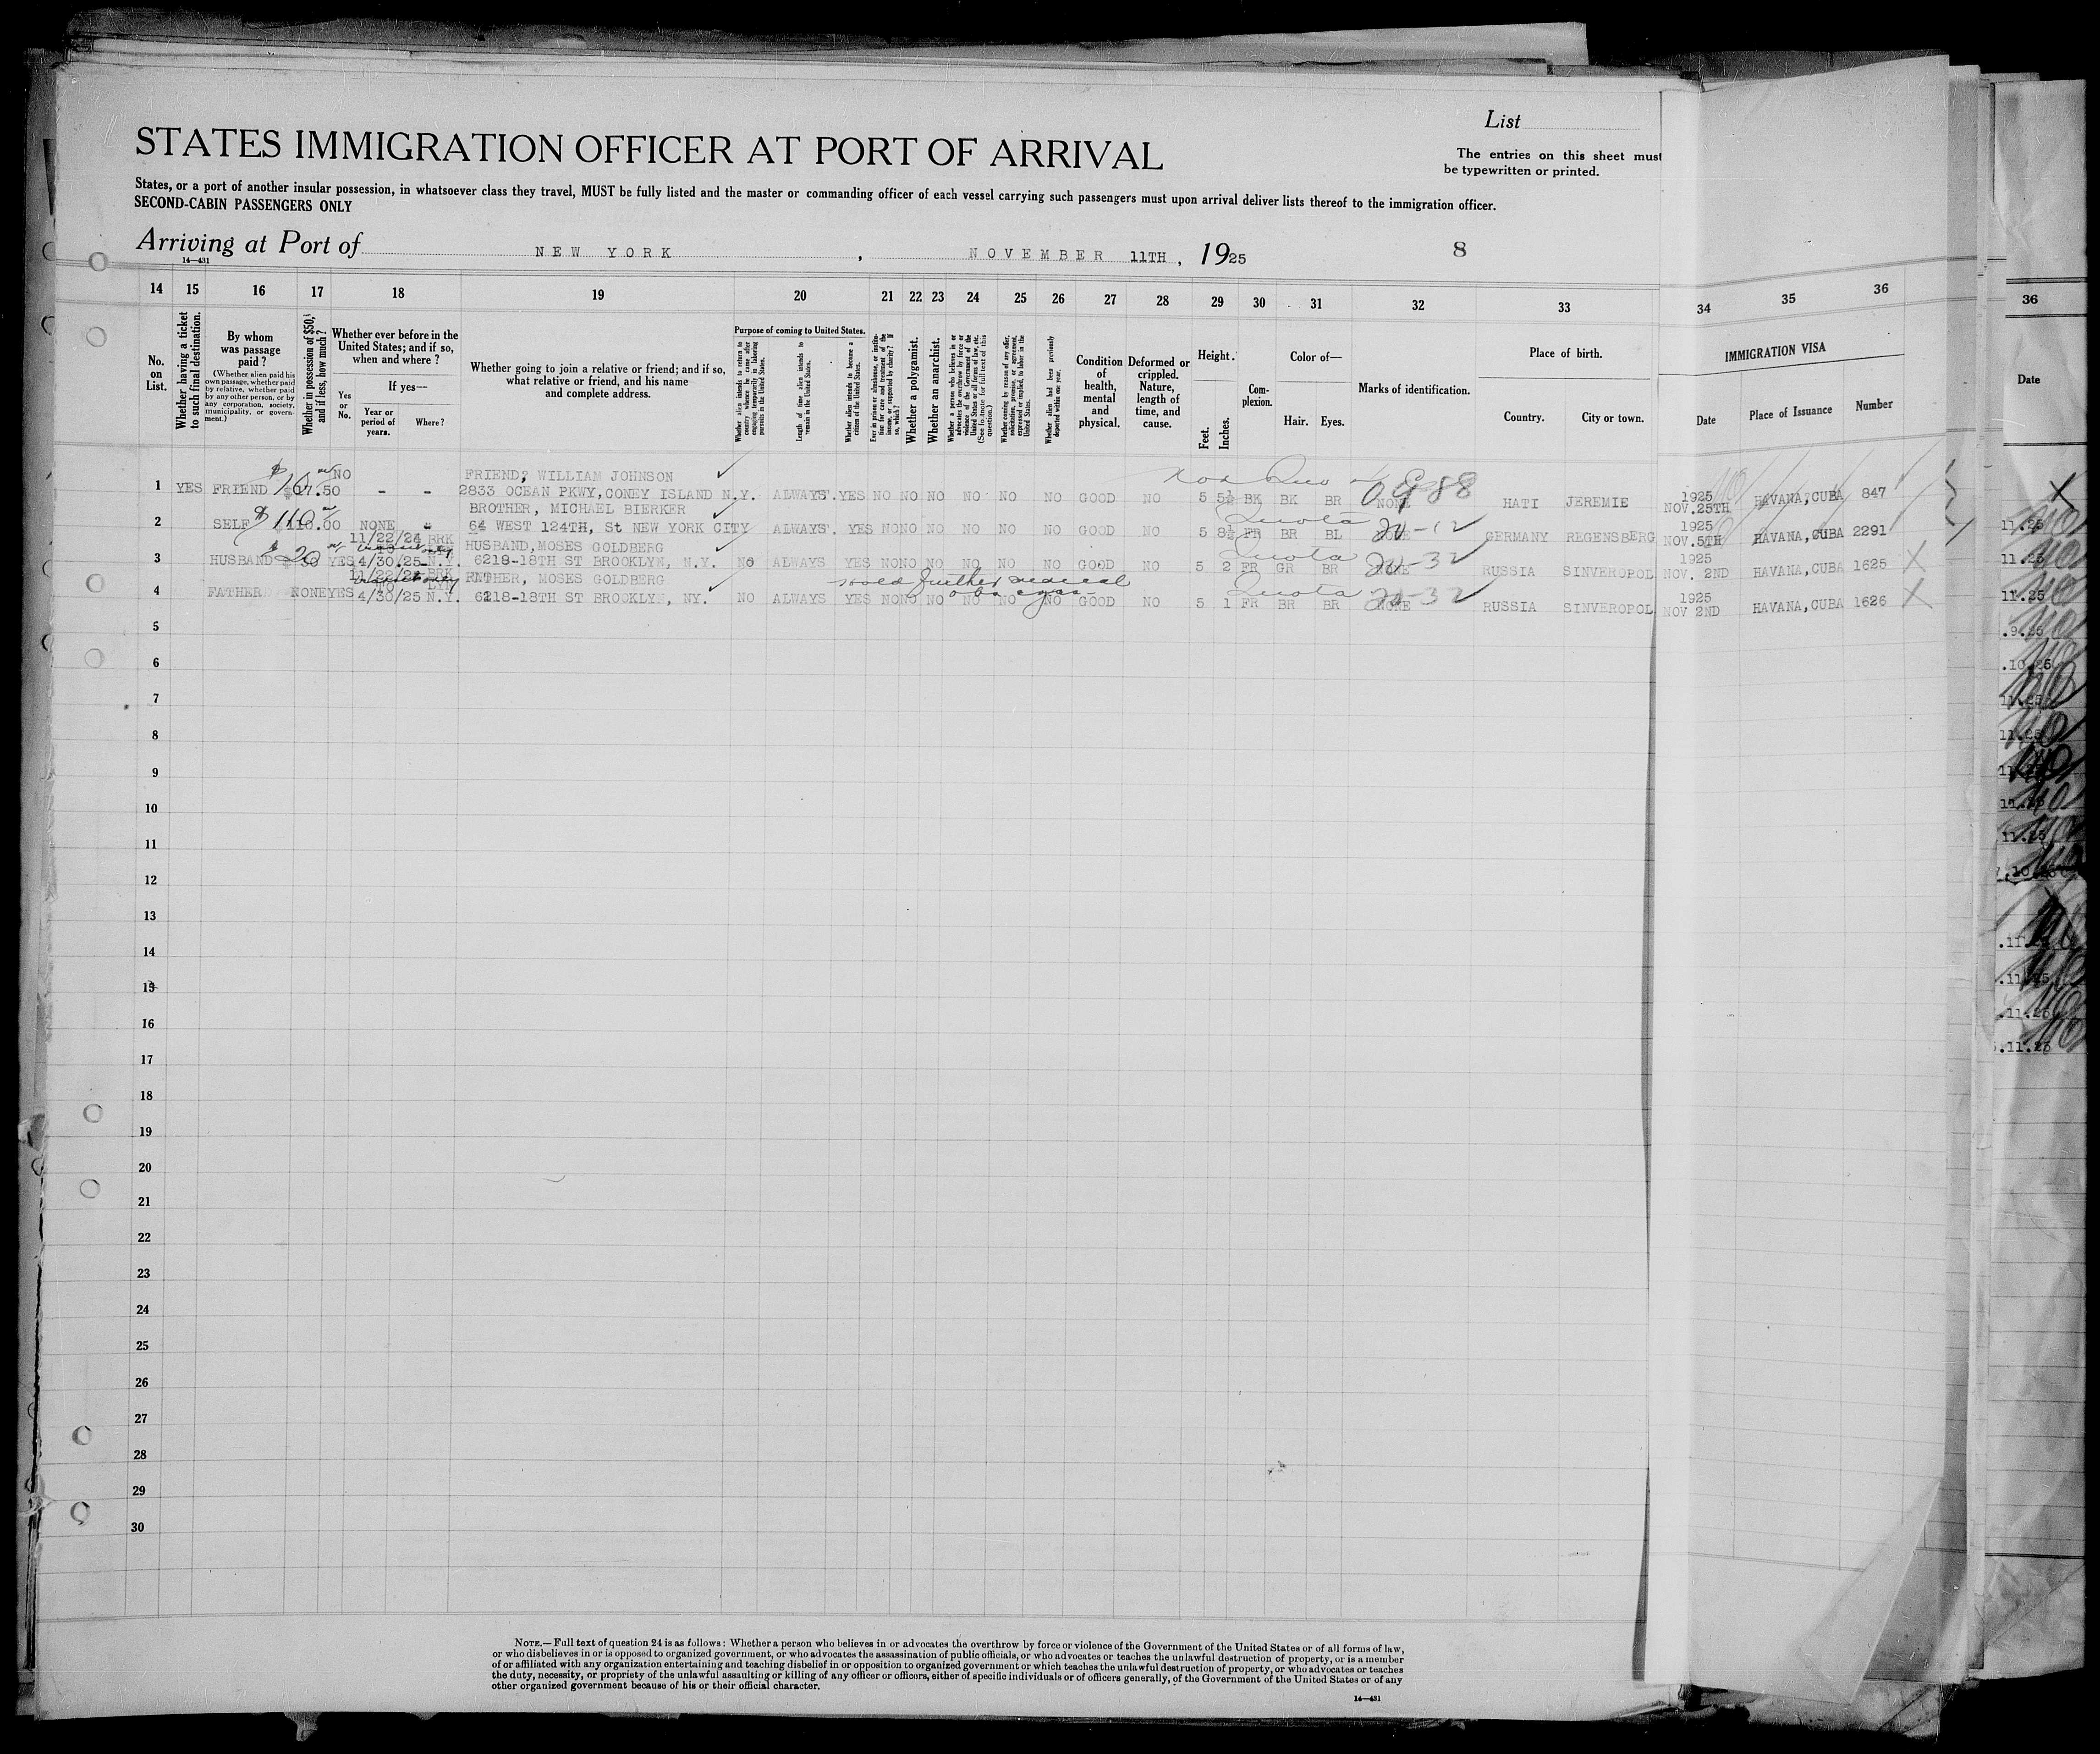 List
STATES IMMIGRATION OFFICER AT PORT OF ARRIVAL
The entries on this sheet must
be typewritten or printed.
States, or a port of another insular possession, in whatsoever class they travel, MUST be fully listed and the master or commanding officer of each vessel carrying such passengers must upon arrival deliver lists thereof to the immigration officer.
SECOND-CABIN PASSENGERS ONLY
Arriving at Port of NEW YORK, NOVEMBER 11TH, 1925 8
14—431
14 15 16 17 18 19 20 21 22 23 24 25 26 27 28 29 30 31 32 33 34 35 36 36
No. on List.
Whether having a ticket to such final destination.
By whom was passage paid?
(Whether alien paid his own passage, whether paid by relative, whether paid by any other person, or by any corporation, society, municipality, or government.)
Whether in possession of $50, and if less, how much?
Whether ever before in the United States; and if so, when and where?
Yes or No.
If yes—
Year or period of years.
Where?
Whether going to join a relative or friend; and if so, what relative or friend, and his name and complete address.
Purpose of coming to United States.
Whether alien intends to return to country whence he came after engaging temporarily in laboring pursuits in the United States.
Length of time alien intends to remain in the United States.
Whether alien intends to become a citizen of the United States.
Ever in prison or almshouse, or institution for care and treatment of the insane, or supported by charity? If so, which?
Whether a polygamist.
Whether an anarchist.
Whether a person who believes in or advocates the overthrow by force or violence of the Government of the United States or all forms of law, etc. (See footnote for full text of this question.)
Whether coming by reason of any offer, solicitation, promise, or agreement, expressed or implied, to labor in the United States.
Whether alien had been previously deported within one year.
Condition of health, mental and physical.
Deformed or crippled. Nature, length of time, and cause.
Height.
Feet. Inches.
Complexion.
Color of—
Hair. Eyes.
Marks of identification.
Place of birth.
Country. City or town.
IMMIGRATION VISA
Date Place of Issuance Number
Date
NO FRIEND, WILLIAM JOHNSON
1 YES FRIEND $17.50 - - 2833 OCEAN PKWY, CONEY ISLAND N.Y. ALWAYS. YES NO NO NO NO NO NO GOOD NO 5 5½ BK BK BR NONE HATI JEREMIE 1925 NOV.25TH HAVANA, CUBA 847
BROTHER, MICHAEL BIERKER
2 SELF $110.00 NONE - 64 WEST 124TH, St NEW YORK CITY ALWAYS. YES NO NO NO NO NO NO GOOD NO 5 8½ FR BR BL Quota 20-12 GERMANY REGENSBERG 1925 NOV.5TH HAVANA, CUBA 2291
11/22/24 BRK HUSBAND, MOSES GOLDBERG
3 HUSBAND $20 YES 4/30/25 N.Y. 6218-18TH ST BROOKLYN, N.Y. NO ALWAYS YES NO NO NO NO NO NO GOOD NO 5 2 FR GR BR Quota 20-32 RUSSIA SINVEROPOL 1925 NOV. 2ND HAVANA, CUBA 1625
FATHER, MOSES GOLDBERG
4 FATHER NONE YES 4/30/25 N.Y. 6218-18TH ST BROOKLYN, NY. NO ALWAYS YES NO NO NO NO NO NO GOOD NO 5 1 FR BR BR Quota 20-32 RUSSIA SINVEROPOL 1925 NOV 2ND HAVANA, CUBA 1626
5
6
7
8
9
10
11
12
13
14
15
16
17
18
19
20
21
22
23
24
25
26
27
28
29
30
NOTE.—Full text of question 24 is as follows: Whether a person who believes in or advocates the overthrow by force or violence of the Government of the United States or of all forms of law,
or who disbelieves in or is opposed to organized government, or who advocates the assassination of public officials, or who advocates or teaches the unlawful destruction of property, or is a member
of or affiliated with any organization entertaining and teaching disbelief in or opposition to organized government or which teaches the unlawful destruction of property, or who advocates or teaches
the duty, necessity, or propriety of the unlawful assaulting or killing of any officer or officers, either of specific individuals or of officers generally, of the Government of the United States or of any
other organized government because of his or their official character.
14—431